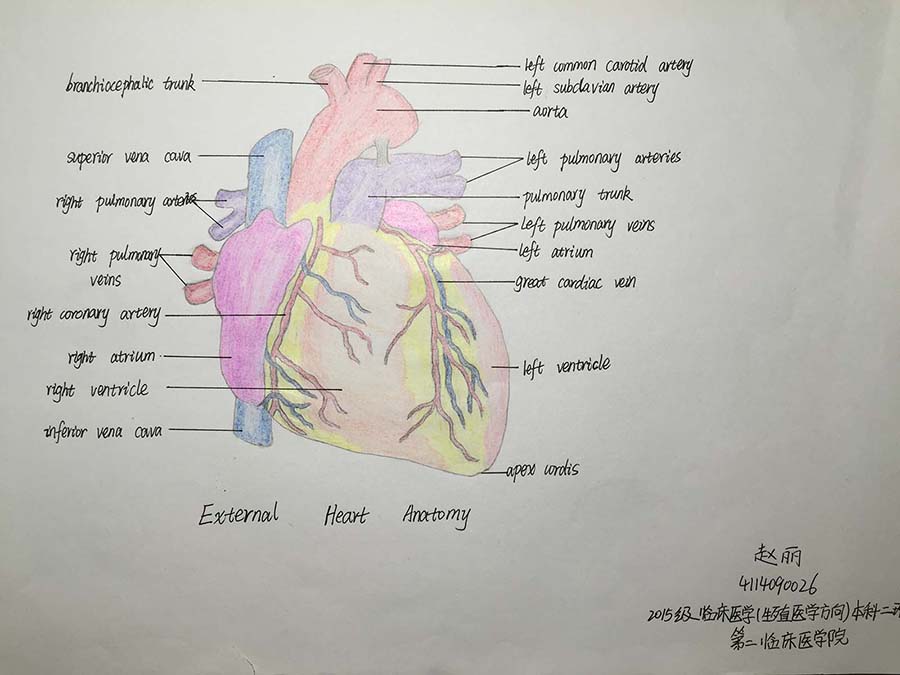 branchiocephalic trunk
superior vena cava
right pulmonary arteries
right pulmonary
veins
right coronary artery
right atrium
right ventricle
inferior vena cava
left common carotid artery
left subclavian artery
aorta
left pulmonary arteries
pulmonary trunk
left pulmonary veins
left atrium
great cardiac vein
left ventricle
apex cordis
External Heart Anatomy
赵丽
4114090026
2015级临床医学(生殖医学方向)本科二
第二临床医学院